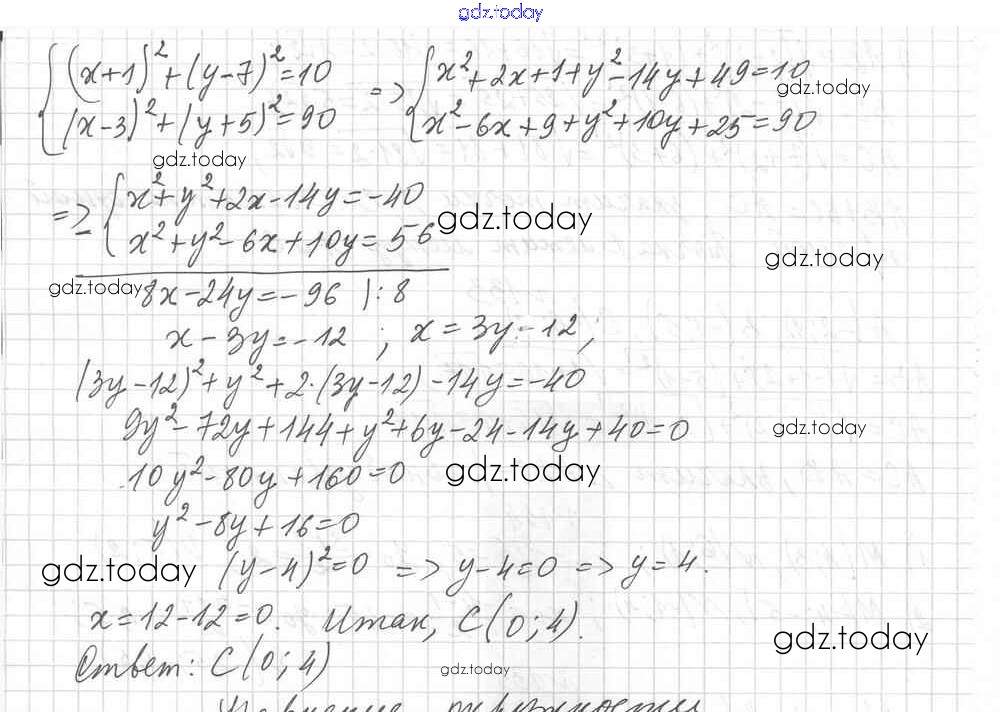 gdz.today
{(x+1)²+(y-7)²=10 => {x²+2x+1+y²-14y+49=10
gdz.today
(x-3)²+(y+5)²=90 x²-6x+9+y²+10y+25=90
gdz.today
=> {x²+y²+2x-14y=-40
gdz.today
- x²+y²-6x+10y=56
gdz.today
gdz.today 8x-24y=-96 |:8
x-3y=-12 ; x=3y-12;
(3y-12)²+y²+2·(3y-12)-14y=-40
9y²-72y+144+y²+6y-24-14y+40=0
gdz.today
10y²-80y+160=0 gdz.today
y²-8y+16=0
gdz.today (y-4)²=0 => y-4=0 => y=4.
x=12-12=0. Итак, C(0;4).
gdz.today
Ответ: C(0;4)
gdz.today